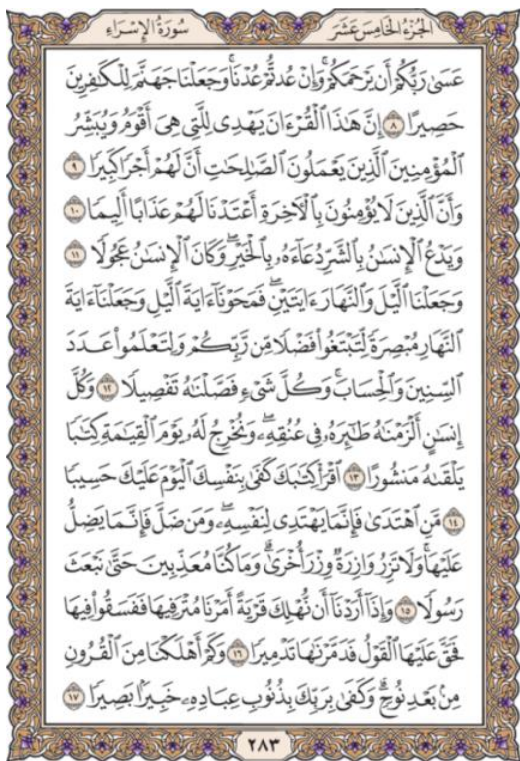 سُورَةُ الإِسْرَاءِ الجُزْءُ الخَامِسَ عَشَرَ
عَسَىٰ رَبُّكُمْ أَن يَرْحَمَكُمْ ۚ وَإِنْ عُدتُّمْ عُدْنَا ۘ وَجَعَلْنَا جَهَنَّمَ لِلْكَٰفِرِينَ
حَصِيرًا ٨ إِنَّ هَٰذَا ٱلْقُرْءَانَ يَهْدِى لِلَّتِى هِىَ أَقْوَمُ وَيُبَشِّرُ
ٱلْمُؤْمِنِينَ ٱلَّذِينَ يَعْمَلُونَ ٱلصَّٰلِحَٰتِ أَنَّ لَهُمْ أَجْرًا كَبِيرًا ٩
وَأَنَّ ٱلَّذِينَ لَا يُؤْمِنُونَ بِٱلْءَاخِرَةِ أَعْتَدْنَا لَهُمْ عَذَابًا أَلِيمًا ١٠
وَيَدْعُ ٱلْإِنسَٰنُ بِٱلشَّرِّ دُعَآءَهُۥ بِٱلْخَيْرِ ۖ وَكَانَ ٱلْإِنسَٰنُ عَجُولًا ١١
وَجَعَلْنَا ٱلَّيْلَ وَٱلنَّهَارَ ءَايَتَيْنِ ۖ فَمَحَوْنَآ ءَايَةَ ٱلَّيْلِ وَجَعَلْنَآ ءَايَةَ
ٱلنَّهَارِ مُبْصِرَةً لِّتَبْتَغُوا۟ فَضْلًا مِّن رَّبِّكُمْ وَلِتَعْلَمُوا۟ عَدَدَ
ٱلسِّنِينَ وَٱلْحِسَابَ ۚ وَكُلَّ شَىْءٍ فَصَّلْنَٰهُ تَفْصِيلًا ١٢ وَكُلَّ
إِنسَٰنٍ أَلْزَمْنَٰهُ طَٰٓئِرَهُۥ فِى عُنُقِهِۦ ۖ وَنُخْرِجُ لَهُۥ يَوْمَ ٱلْقِيَٰمَةِ كِتَٰبًا
يَلْقَىٰهُ مَنشُورًا ١٣ ٱقْرَأْ كِتَٰبَكَ كَفَىٰ بِنَفْسِكَ ٱلْيَوْمَ عَلَيْكَ حَسِيبًا
١٤ مَّنِ ٱهْتَدَىٰ فَإِنَّمَا يَهْتَدِى لِنَفْسِهِۦ ۖ وَمَن ضَلَّ فَإِنَّمَا يَضِلُّ
عَلَيْهَا ۚ وَلَا تَزِرُ وَازِرَةٌ وِزْرَ أُخْرَىٰ ۗ وَمَا كُنَّا مُعَذِّبِينَ حَتَّىٰ نَبْعَثَ
رَسُولًا ١٥ وَإِذَآ أَرَدْنَآ أَن نُّهْلِكَ قَرْيَةً أَمَرْنَا مُتْرَفِيهَا فَفَسَقُوا۟ فِيهَا
فَحَقَّ عَلَيْهَا ٱلْقَوْلُ فَدَمَّرْنَٰهَا تَدْمِيرًا ١٦ وَكَمْ أَهْلَكْنَا مِنَ ٱلْقُرُونِ
مِنۢ بَعْدِ نُوحٍ ۗ وَكَفَىٰ بِرَبِّكَ بِذُنُوبِ عِبَادِهِۦ خَبِيرًۢا بَصِيرًا ١٧
٢٨٣